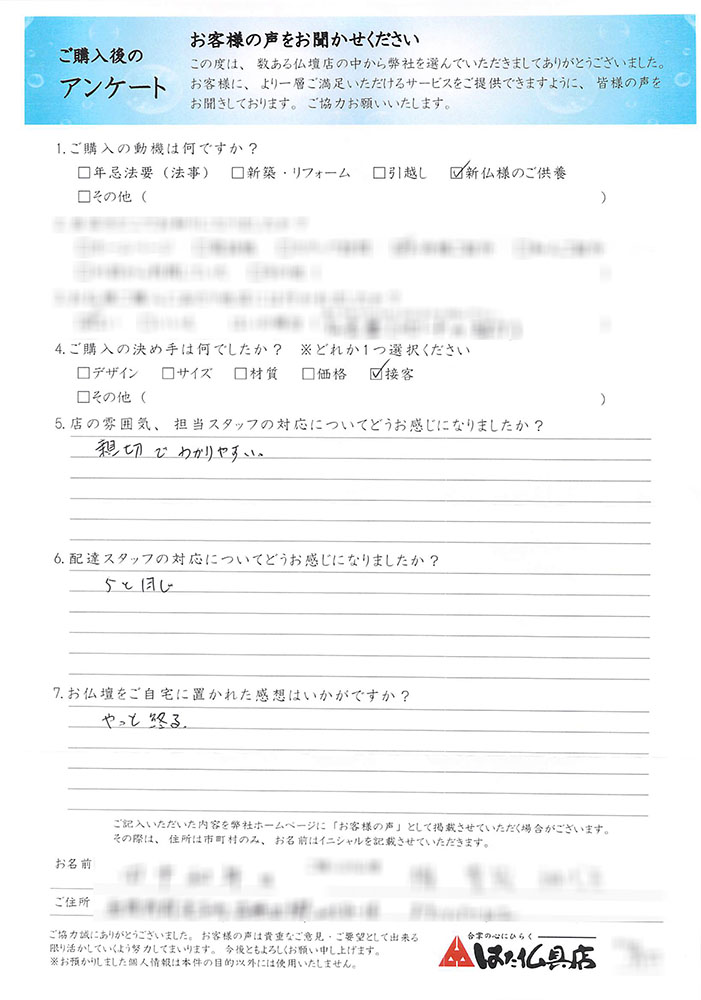 ご購入後の
アンケート
お客様の声をお聞かせください
この度は、数ある仏壇店の中から弊社を選んでいただきましてありがとうございました。
お客様に、より一層ご満足いただけるサービスをご提供できますように、皆様の声を
お聞きしております。ご協力お願いいたします。
1.ご購入の動機は何ですか？
□年忌法要（法事） □新築・リフォーム □引越し ☑新仏様のご供養
□その他（ ）
4.ご購入の決め手は何でしたか？ ※どれか1つ選択ください
□デザイン □サイズ □材質 □価格 ☑接客
□その他（ ）
5.店の雰囲気、担当スタッフの対応についてどうお感じになりましたか？
親切でわかりやすい。
6.配達スタッフの対応についてどうお感じになりましたか？
5と同じ
7.お仏壇をご自宅に置かれた感想はいかがですか？
やっと終る。
ご記入いただいた内容を弊社ホームページに「お客様の声」として掲載させていただく場合がございます。
その際は、住所は市町村のみ、お名前はイニシャルを記載させていただきます。
お名前
ご住所
ご協力誠にありがとうございました。お客様の声は貴重なご意見・ご要望として出来る
限り活かしていくよう努力してまいります。今後ともよろしくお願い申し上げます。
※お預かりしました個人情報は本件の目的以外には使用いたしません。
合掌の心にひらく
はた仏具店